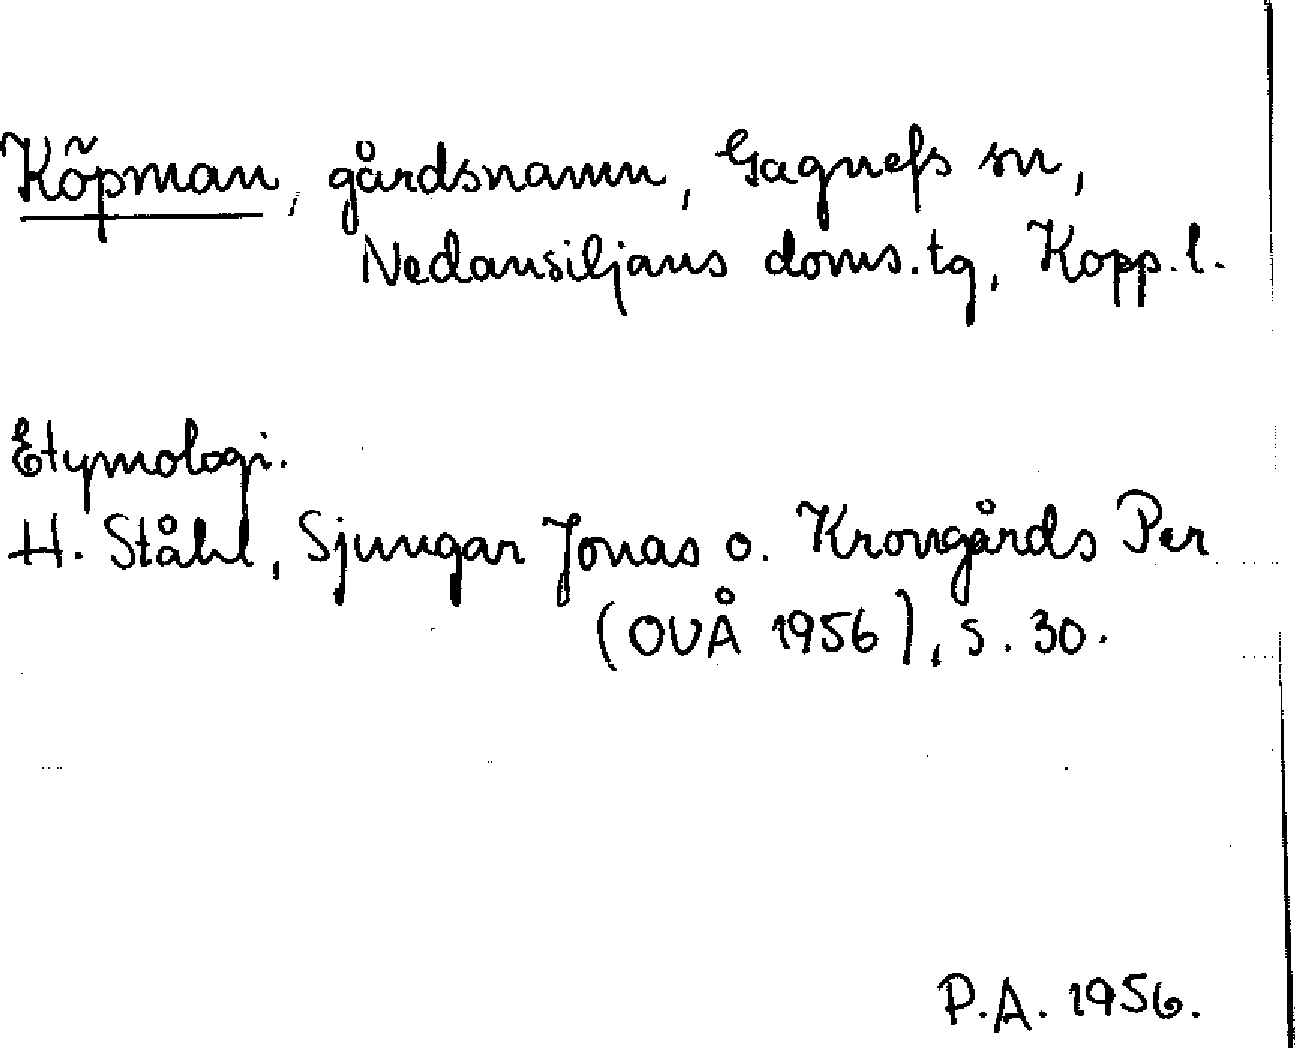 Köpman, gårdsnamn, Gagnefs sn,
Nedansiljans doms.tg, Kopp.l.
Etymologi.
H. Ståhl, Sjungar Jonas o. Krongårds Per
(OUÅ 1956), s. 30.
P.A. 1956.